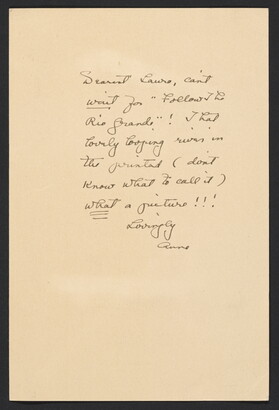 Dearest Laura, can't
wait for "Follow The
Rio Grande"! That
lovely looping river in
the printed (don't
know what to call it)
what a picture!!!
Lovingly
Anne